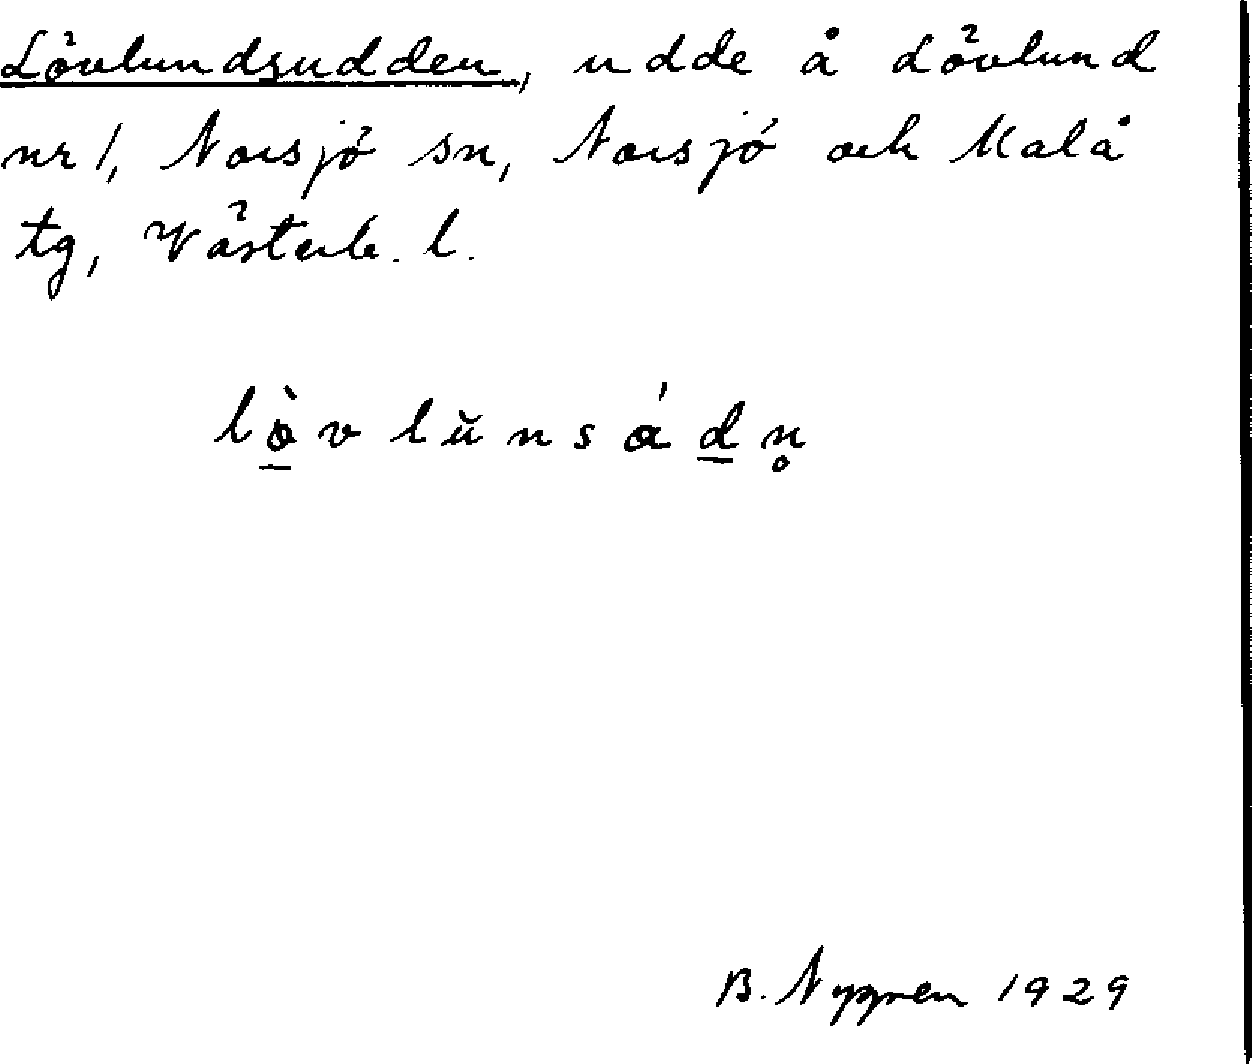 Lövlundsudden, udde å Lövlund
nr 1, Norsjö sn, Norsjö och Malå
tg, Västerb. l.
lò̲v lŭnsád̲n̥
B. Nygren 1929